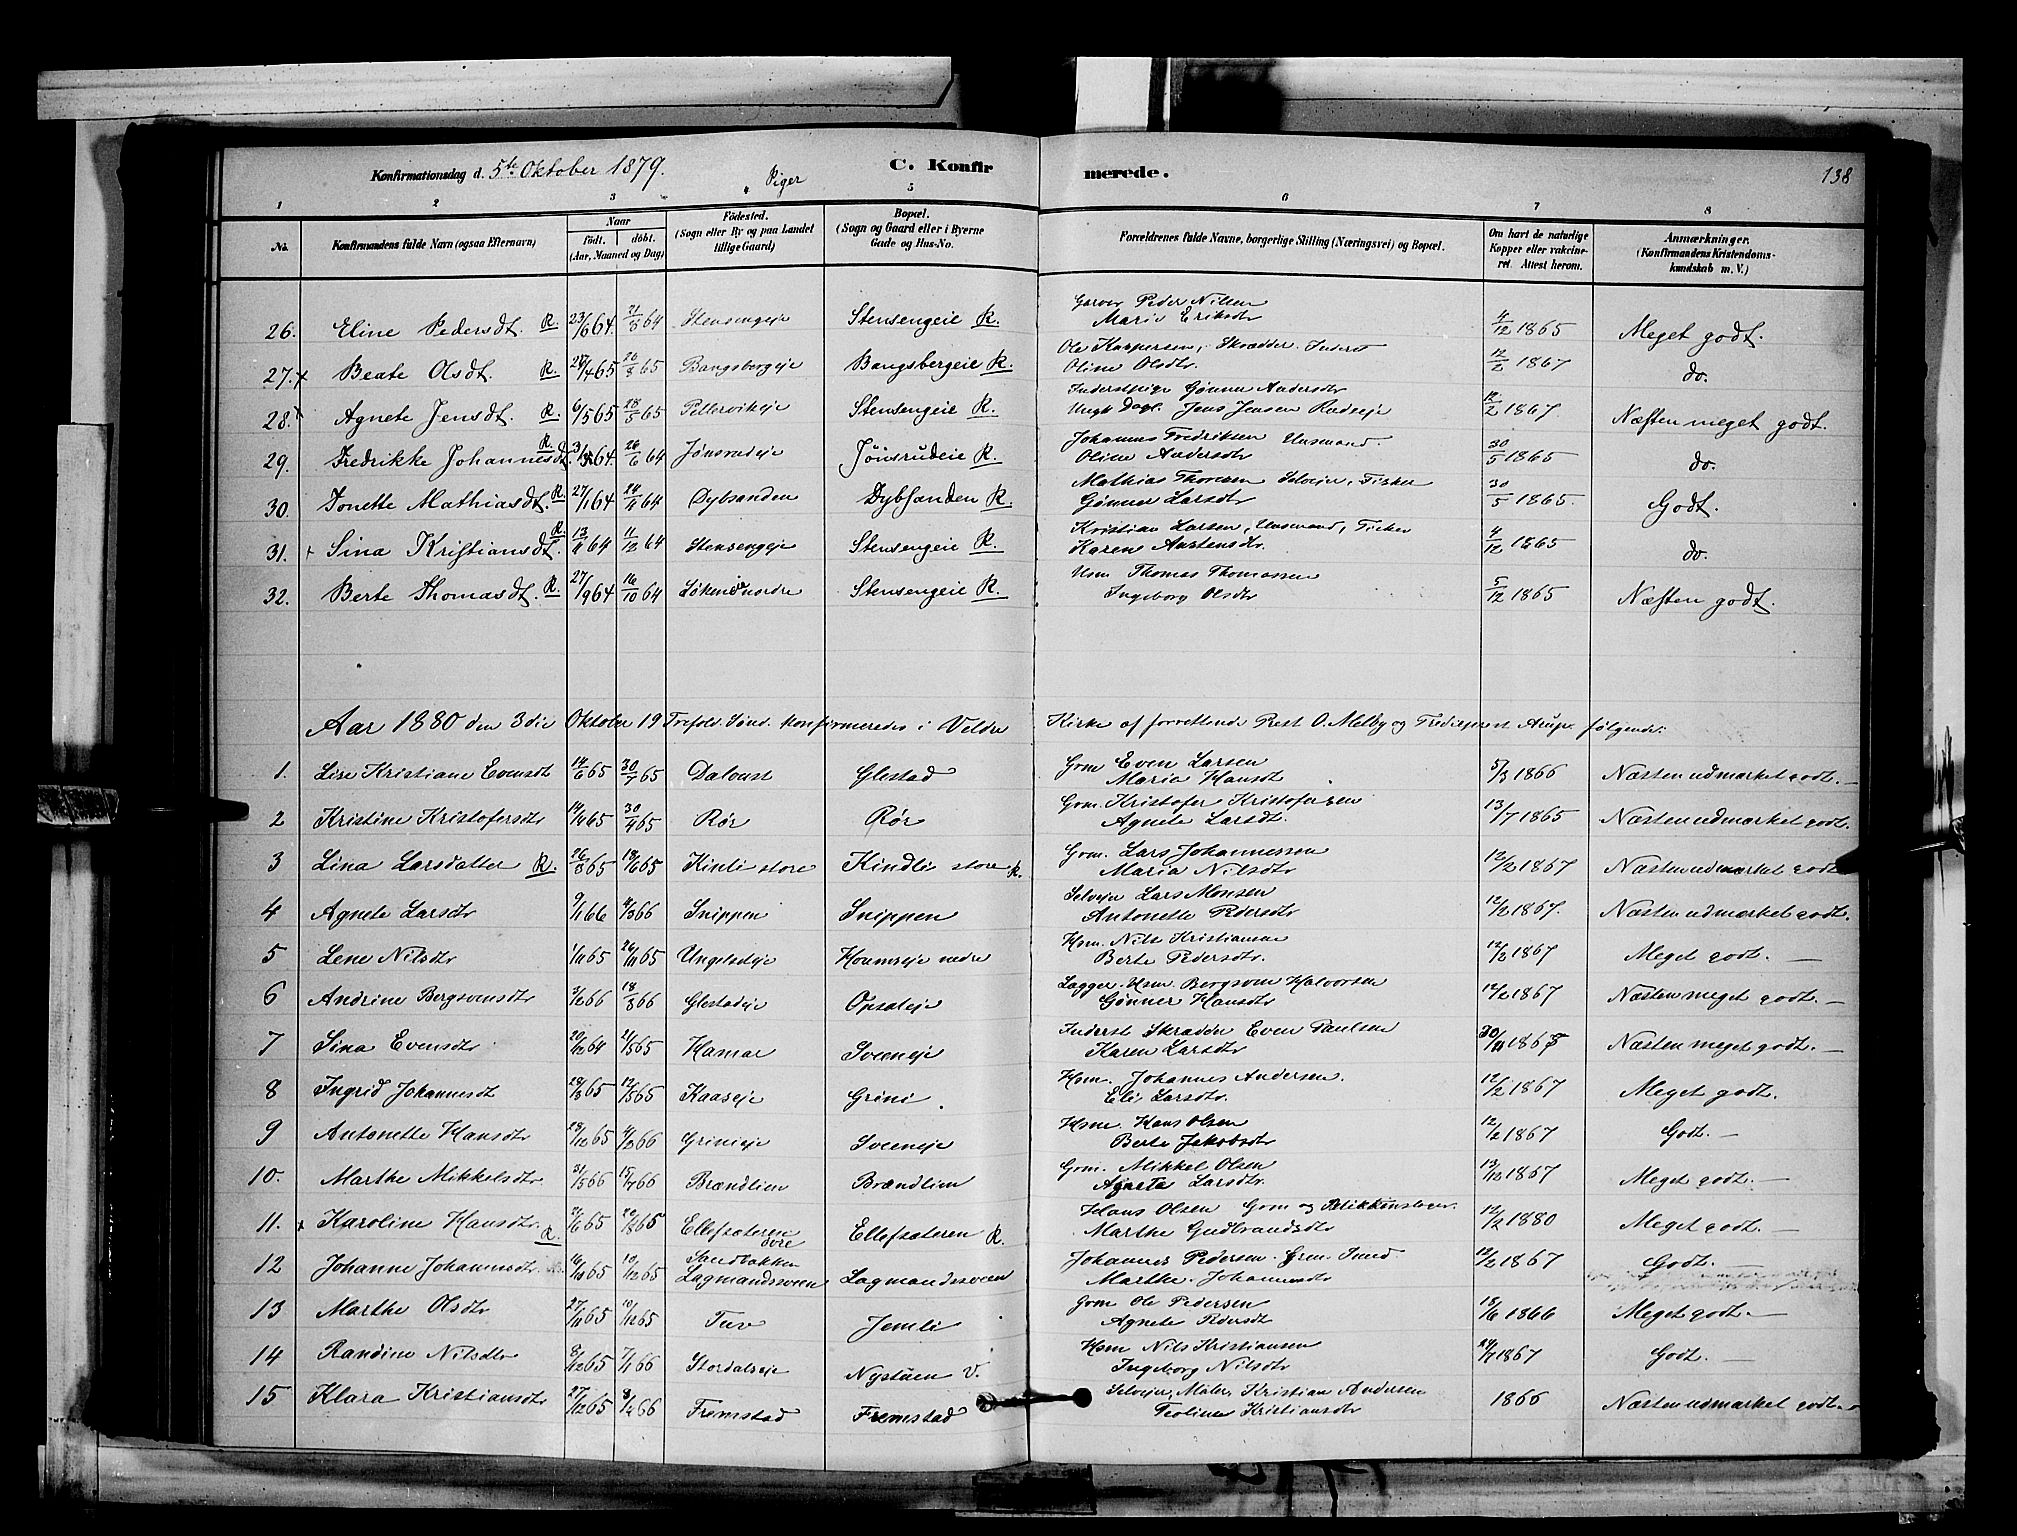 Konfirmationsdag d. 5te Oktober 1879. Piger C. Konfirmerede. 138
1 2 3 4 5 6 7 8
No. Konfirmandens fulde Navn (ogsaa Efternavn) Naar født. døbt. (Aar, Maaned og Dag) Fødested. (Sogn eller By og paa Landet tillige Gaard) Bopæl. (Sogn og Gaard eller i Byerne Gade og Hus-No. Forældrenes fulde Navne, borgerlige Stilling (Næringsvei) og Bopæl. Om havt de naturlige Kopper eller vakcineret. Attest herom. Anmærkninger. (Konfirmandens Kristendomskundskab m. V.)
26. Eline Pedersdt. R. 23/6 64 21/8 64 Stensengeje Stensengeie R. Garver Peder Nilsen
Marie Eriksdtr 4/12 1865 Meget godt.
27. x Beate Olsdt. R. 28/4 65 26/8 65 Bangsbergeje Bangsbergeie R. Ole Kaspersen, Skrædder. Inderst
Oline Olsdtr. 12/2 1867 do.
28. x Agnete Jensdt. R. 6/5 65 28/5 65 Pellervikeje Stensengeie R. Inderstpige Gønner Andersdtr
Ungk Dagl. Jens Jensen Rudseje 12/2 1867. Næsten meget godt.
29. Fredrikke Johannesdt. R. 26/6 64 Jønsrudeje Jönsrudeie R. Johannes Fredriksen Husmand.
Oline Andersdtr 30/5 1865 do.
30. Jonette Mathiasdt. R. 27/1 64 24/4 64 Dybsanden Dybsanden R. Mathias Thoresen Selveier, Fisker
Gønner Larsdt 30/5 1865. Godt.
31. x Sina Kristiansdt. R. 13/11 64 11/12 64 Stensengeje Stensengeie R. Kristian Larsen, Husmand, Fisker
Karen Austensdtr. 4/12 1865 do.
32. Berte Thomasdt. R. 27/9 64 16/10 64 Løken nordre Stensengeie R. Hsm Thomas Thomassen
Ingeborg Olsdtr 5/12 1865 Næsten godt.
Aar 1880 den 3die Oktober 19 Trefold. Sønd. konfirmeredes i Veldre Kirke af forrettende Præst O. Melby og Trediepræst Arup følgende:
1. Lise Kristiane Evensdt 14/6 65 30/7 65 Daloust Glestad Gom Even Larsen
Maria Hansdt 5/3 1866 Næsten udmærket godt. —
2 Kristine Kristofersdtr 14/4 65 30/4 65 Rør Rør Gom. Kristofer Kristofersen
Agnete Larsdt. 13/7 1865 Næsten udmærket godt.
3 Lina Larsdatter R. 26/3 65 18/6 65 Kinli store Kindli store R. Gom. Lars Johannessen
Maria Nilsdtr 12/2 1867 Næsten udmærket godt
4 Agnete Larsdtr 9/1 66 4/3 66 Snippen Snippen Selvejer Lars Monsen
Antonette Pedersdtr 12/2 1867. Næsten udmærket godt.
5 Lene Nilsdtr 1/11 65 26/11 65 Ungelsdeje Houmseje nedre Hsm. Nils Kristiansen
Berte Pedersdtr. 12/2 1867 Meget godt. —
6 Andrine Bergsvensdtr 3/2 66 18/3 66 Glestadeje Opsaleje Lægger. Hsm. Bergsven Halvorsen
Gønner Hansdtr 12/2 1867 Næsten meget godt. —
7 Sina Evensdtr 20/12 64 21/5 65 Hamar Sveeneje Inderst Skrædder Even Paulsen
Karen Larsdtr 30/11 1868 Næsten meget godt. —
8 Ingrid Johannesdt 28/3 65 12/5 65 Kaaseje Grini Hsm. Johannes Andersen.
Eli Larsdtr. 12/2 1867 Meget godt.
9 Antonette Hansdtr 28/12 65 4/2 66 Grinieje Sveeneje Hsm. Hans Olsen
Berte Jakobsdtr 12/2 1867 Godt. —
10. Marthe Mikkelsdtr. 31/5 66 15/7 66 Brændlien Brændlien Gom. Mikkel Olsen
Agneta Larsdtr. 13/12 1867 Meget godt. —
11. x Karoline Hansdtr. R. Ellefsæteren øvre Ellefsæteren R. Hans Olsen Gom og
Marthe Gudbrandsdtr 12/2 1880 Meget godt. —
12 Johanne Johannesdtr 16/10 65 10/12 65 Sandbakken Lagmandssveen Lagmandssveen Johannes Pedersen. Smed.
Marthe Johannesdtr 12/2 1867 Godt. —
13 Marthe Olsdtr 27/11 65 10/12 65 Tuv Jemli Gom Ole Pedersen
Agnete Pedersdt 18/6 1866 Meget godt. —
14 Randine Nilsdtr 8/12 65 7/1 66 Stordalseje Nystuen V. Hsm Nils Kristiansen
Ingeborg Nilsdtr 24/7 1867 Godt. —
15 Klara Kristiansdtr 27/12 65 8/4 66 Fremstad Fremstad Selvejer, Maler, Kristian Andersen
Teoline Kristiansdtr 1866 Næsten udmærket godt.